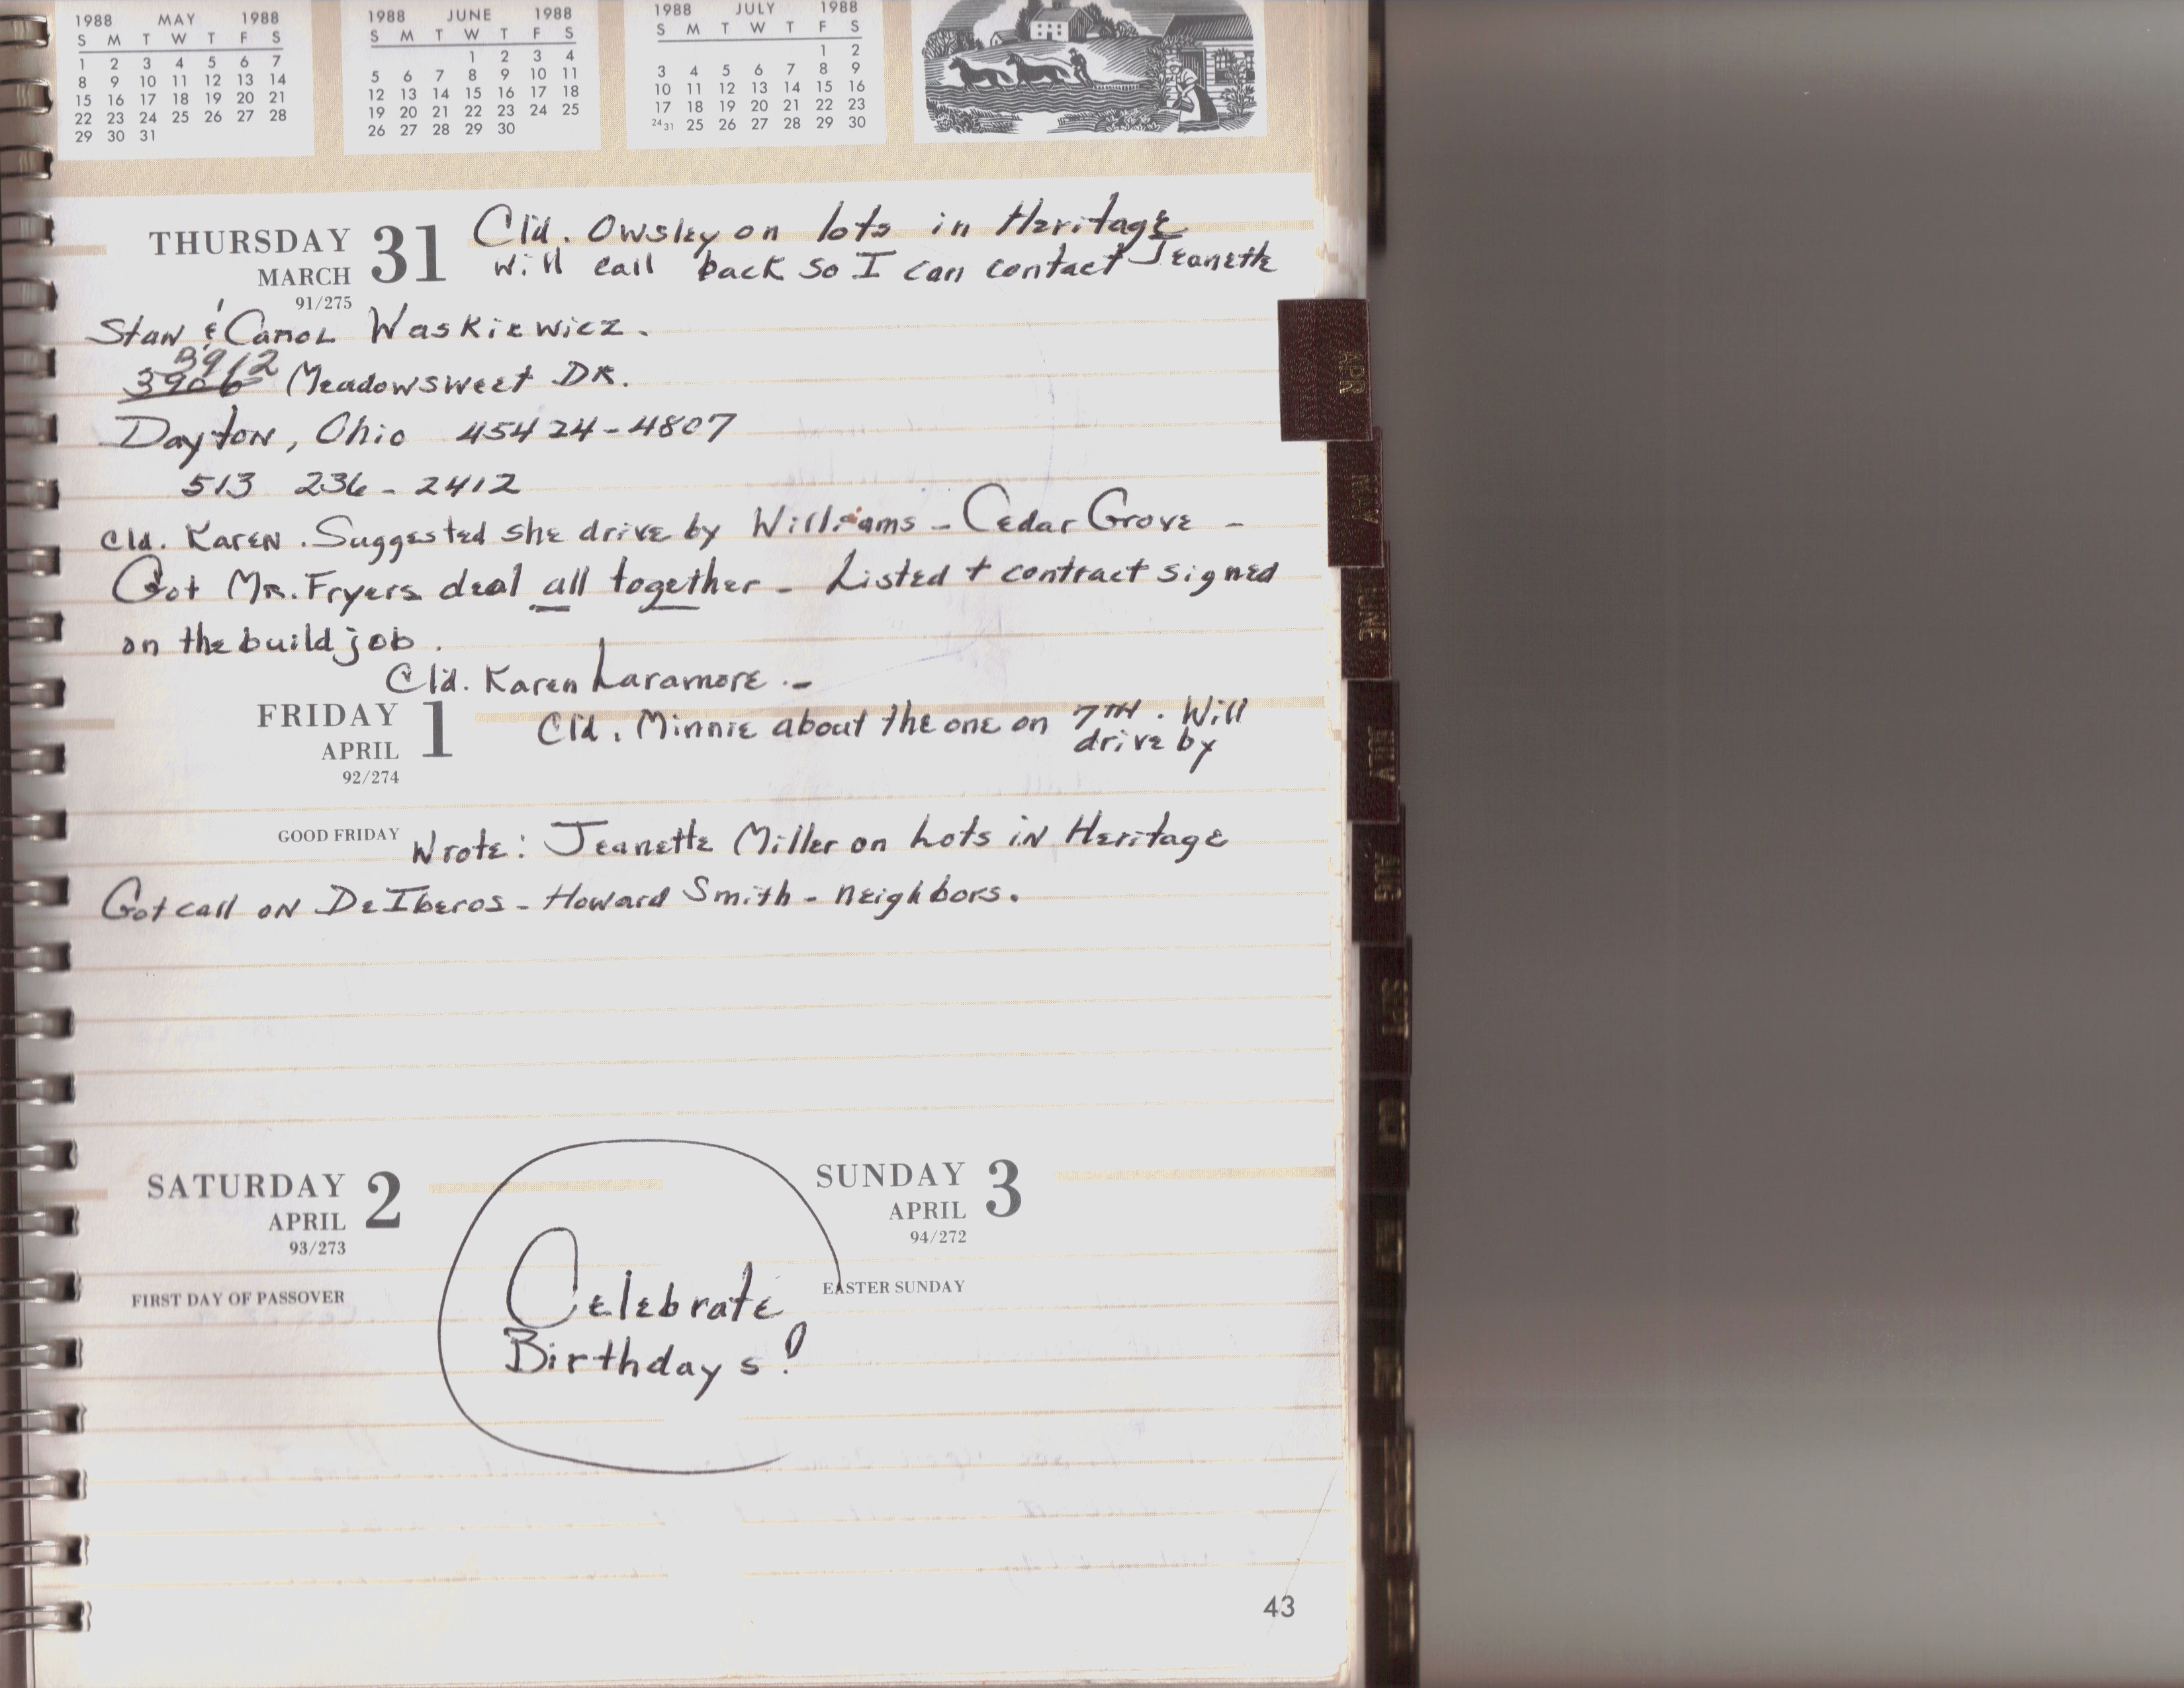 1988 MAY 1988
S M T W T F S
1 2 3 4 5 6 7
8 9 10 11 12 13 14
15 16 17 18 19 20 21
22 23 24 25 26 27 28
29 30 31
1988 JUNE 1988
S M T W T F S
1 2 3 4
5 6 7 8 9 10 11
12 13 14 15 16 17 18
19 20 21 22 23 24 25
26 27 28 29 30
1988 JULY 1988
S M T W T F S
1 2
3 4 5 6 7 8 9
10 11 12 13 14 15 16
17 18 19 20 21 22 23
24 31 25 26 27 28 29 30
THURSDAY 31
MARCH
91/275
Cld. Owsley on lots in Heritage
will call back so I can contact Jeanette
Stan & Carol Waskiewicz.
3912
3906 Meadowsweet DR.
Dayton, Ohio 45424-4807
513 236-2412
Cld. Karen. Suggested she drive by Williams - Cedar Grove -
Got Mr. Fryers deal all together - Listed + contract signed
on the build job.
Cld. Karen Laramore.-
FRIDAY 1
APRIL
92/274
Cld. Minnie about the one on 7TH. Will
drive by
GOOD FRIDAY
Wrote: Jeanette Miller on Lots in Heritage
Got call on DeIberos - Howard Smith - neighbors.
SATURDAY 2
APRIL
93/273
FIRST DAY OF PASSOVER
SUNDAY 3
APRIL
94/272
EASTER SUNDAY
Celebrate
Birthdays!
43
APR
MAY
JUNE
JULY
AUG
SEPT